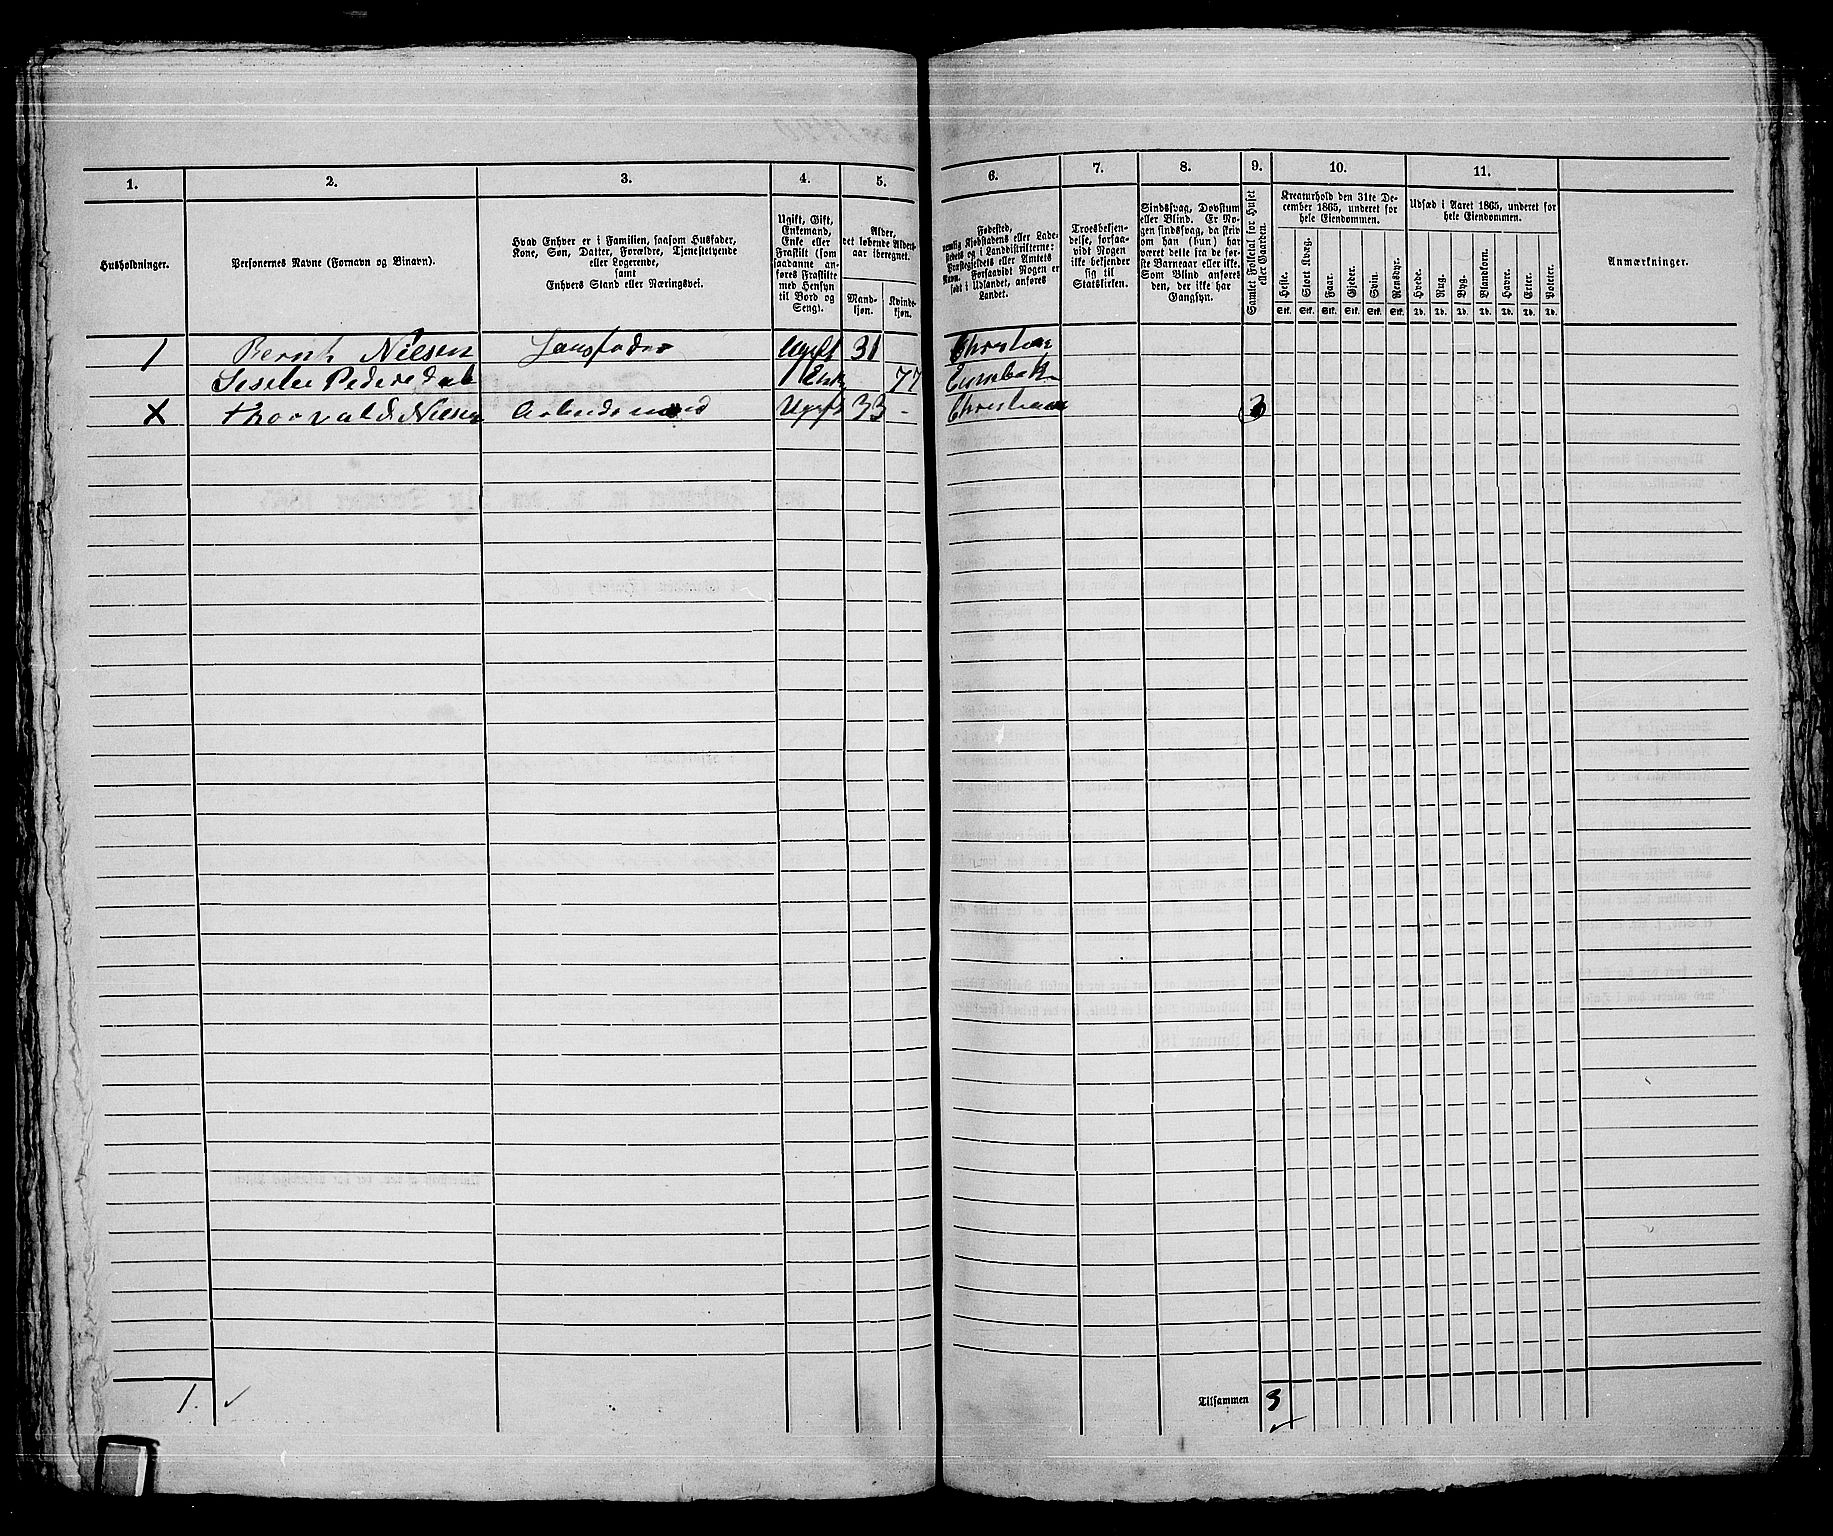 1. 2. 3. 4. 5. 6. 7. 8. 9. 10. 11.
Husholdninger.
Personernes Navne (Fornavn og Binavn).
Hvad Enhver er i Familien, saasom Husfader,
Kone, Søn, Datter, Forældre, Tjenestetyende
eller Logerende,
samt
Enhvers Stand eller Næringsvei.
Ugift, Gift,
Enkemand,
Enke eller
Fraskilt (som
saadanne an-
føres Fraskilte
med Hensyn
til Bord og
Seng).
Alder,
det løbende Alders-
aar iberegnet.
Mand-
kjøn.
Kvinde-
kjøn.
Fødested,
nemlig Kjøbstadens eller Lade-
stedets og i Landdistrikterne:
Præstegjeldets eller Amtets
Navn. Forsaavidt Nogen er
født i Udlandet, anføres
Landet.
Troesbekjen-
delse, forsaa-
vidt Nogen
ikke bekjender
sig til
Statskirken.
Sindssvag, Døvstum
eller Blind. Er No-
gen sindssvag, da skriv
om han (hun) har
været dette fra de før-
ste Barneaar eller ikke.
Som Blind anføres
den, der ikke har
Gangsyn.
Samlet Folketal for Huset
eller Gaarden.
Kreaturhold den 31te De-
cember 1865, underet for
hele Eiendommen.
Heste. Stort Kvæg. Faar. Gjeder. Svin. Rensdyr.
Stk. Stk. Stk. Stk. Stk. Stk.
Udsæd i Aaret 1865, underet for
hele Eiendommen.
Hvede. Rug. Byg. Blandkorn. Havre. Erter. Poteter.
Td. Td. Td. Td. Td. Td. Td.
Anmærkninger.
1 Bernh Nilsen Ugift 31
77
x Thorvald Nilsen Arbeidsmand Ugift 33 - 3
1. ✓ Tilsammen 3